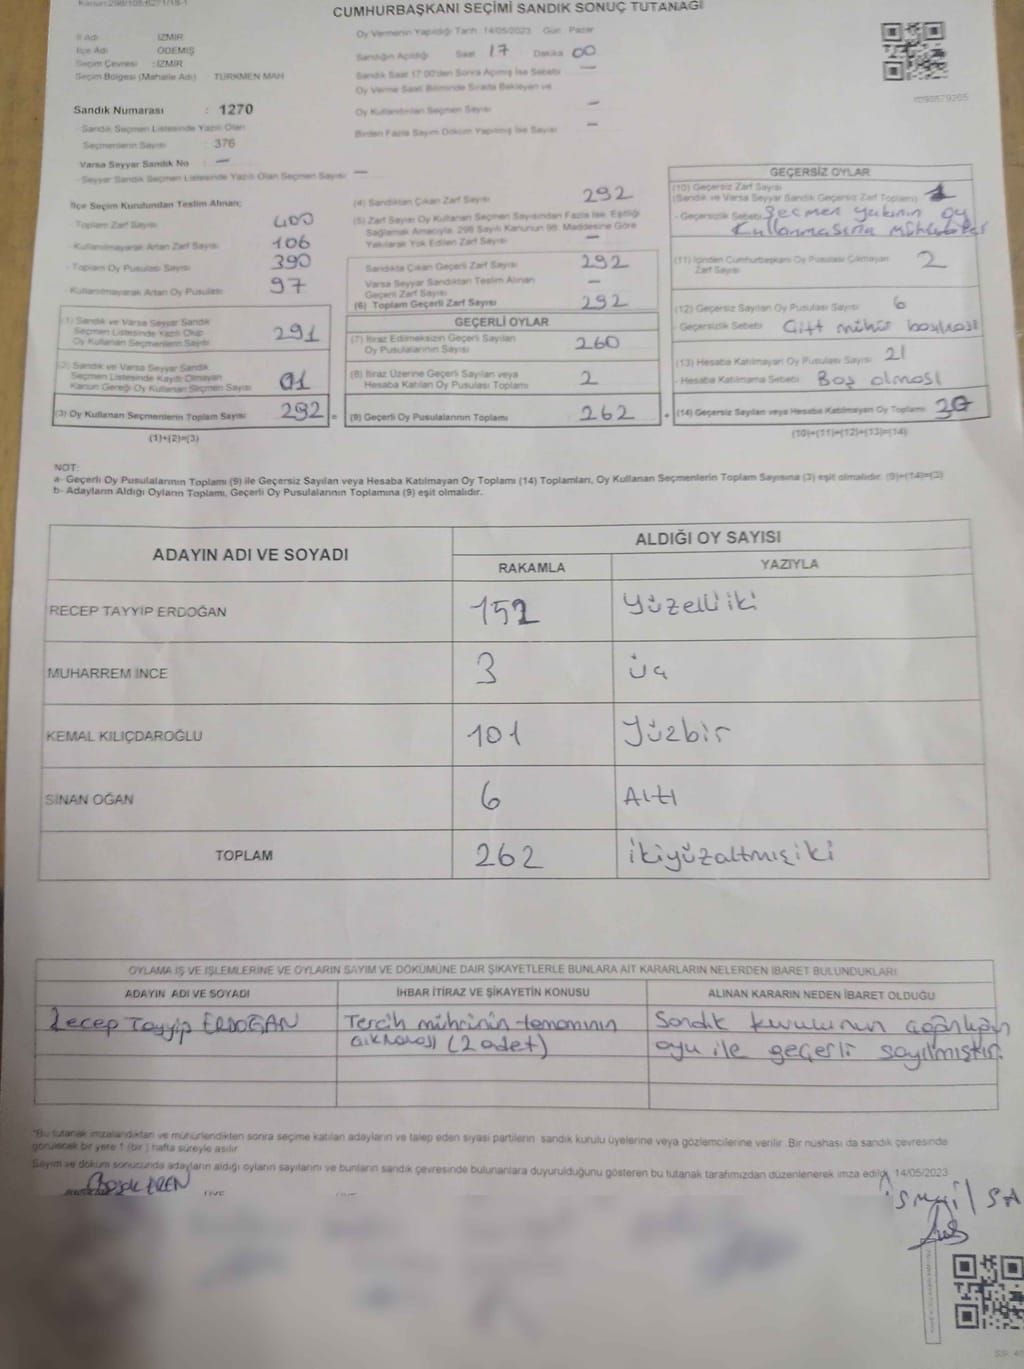 CUMHURBAŞKANI SEÇİMİ SANDIK SONUÇ TUTANAĞI
İl Adı İZMİR
İlçe Adı ÖDEMİŞ
Seçim Çevresi : İZMİR
Seçim Bölgesi (Mahalle Adı) TÜRKMEN MAH
Sandık Numarası : 1270
- Sandık Seçmen Listesinde Yazılı Olan
Seçmenlerin Sayısı : 376
Varsa Seyyar Sandık No : —
- Seyyar Sandık Seçmen Listesinde Yazılı Olan Seçmen Sayısı : —
Oy Vermenin Yapıldığı Tarih: 14/05/2023 Gün: Pazar
Sandığın Açıldığı Saat 17 Dakika 00
Sandık Saat 17:00'den Sonra Açılmış İse Sebebi : —
Oy Verme Saati Bitiminde Sırada Bekleyen ve
Oy Kullandırılan Seçmen Sayısı —
Birden Fazla Sayım Döküm Yapılmış İse Sayısı —
İlçe Seçim Kurulundan Teslim Alınan;
- Toplam Zarf Sayısı 400
- Kullanılmayarak Artan Zarf Sayısı 106
- Toplam Oy Pusulası Sayısı 390
- Kullanılmayarak Artan Oy Pusulası 97
(1) Sandık ve Varsa Seyyar Sandık
Seçmen Listesinde Yazılı Olup
Oy Kullanan Seçmenlerin Sayısı 291
(2) Sandık ve Varsa Seyyar Sandık
Seçmen Listesinde Kayıtlı Olmayan
Kanun Gereği Oy Kullanan Seçmen Sayısı 01
(3) Oy Kullanan Seçmenlerin Toplam Sayısı 292 =
(1)+(2)=(3)
(4) Sandıktan Çıkan Zarf Sayısı 292
(5) Zarf Sayısı Oy Kullanan Seçmen Sayısından Fazla İse, Eşitliği
Sağlamak Amacıyla, 298 Sayılı Kanunun 98. Maddesine Göre
Yakılarak Yok Edilen Zarf Sayısı —
Sandıkta Çıkan Geçerli Zarf Sayısı 292
Varsa Seyyar Sandıktan Teslim Alınan
Geçerli Zarf Sayısı —
(6) Toplam Geçerli Zarf Sayısı 292
GEÇERLİ OYLAR
(7) İtiraz Edilmeksizin Geçerli Sayılan
Oy Pusulalarının Sayısı 260
(8) İtiraz Üzerine Geçerli Sayılan veya
Hesaba Katılan Oy Pusulası Toplamı 2
(9) Geçerli Oy Pusulalarının Toplamı 262 +
GEÇERSİZ OYLAR
(10) Geçersiz Zarf Sayısı
(Sandık ve Varsa Seyyar Sandık Geçersiz Zarf Toplamı) : 1
- Geçersizlik Sebebi: Seçmen yakının oy
kullanmasına müteakiben
(11) İçinden Cumhurbaşkanı Oy Pusulası Çıkmayan
Zarf Sayısı 2
(12) Geçersiz Sayılan Oy Pusulası Sayısı : 6
- Geçersizlik Sebebi: Çift mühür basılması
(13) Hesaba Katılmayan Oy Pusulası Sayısı : 21
- Hesaba Katılmama Sebebi: Boş olması
(14) Geçersiz Sayılan veya Hesaba Katılmayan Oy Toplamı 30
(10)+(11)+(12)+(13)=(14)
NOT:
a- Geçerli Oy Pusulalarının Toplamı (9) ile Geçersiz Sayılan veya Hesaba Katılmayan Oy Toplamı (14) Toplamları, Oy Kullanan Seçmenlerin Toplam Sayısına (3) eşit olmalıdır. (9)+(14)=(3)
b- Adayların Aldığı Oyların Toplamı, Geçerli Oy Pusulalarının Toplamına (9) eşit olmalıdır.
ADAYIN ADI VE SOYADI
ALDIĞI OY SAYISI
RAKAMLA YAZIYLA
RECEP TAYYİP ERDOĞAN 152 Yüzelliiki
MUHARREM İNCE 3 üç
KEMAL KILIÇDAROĞLU 101 Yüzbir
SİNAN OĞAN 6 Altı
TOPLAM 262 ikiyüzaltmışiki
OYLAMA İŞ VE İŞLEMLERİNE VE OYLARIN SAYIM VE DÖKÜMÜNE DAİR ŞİKAYETLERLE BUNLARA AİT KARARLARIN NELERDEN İBARET BULUNDUKLARI
ADAYIN ADI VE SOYADI İHBAR İTİRAZ VE ŞİKAYETİN KONUSU ALINAN KARARIN NEDEN İBARET OLDUĞU
Recep Tayyip ERDOĞAN Tercih mührünün tamamının Sandık kurulunun çoğunluğun
çıkmaması (2 adet) oyu ile geçerli sayılmıştır.
"Bu tutanak imzalandıktan ve mühürlendikten sonra seçime katılan adayların ve talep eden siyasi partilerin sandık kurulu üyelerine veya gözlemcilerine verilir. Bir nüshası da sandık çevresinde
görülecek bir yere 1 (bir) hafta süreyle asılır.
Sayım ve döküm sonucunda adayların aldığı oyların sayılarını ve bunların sandık çevresinde bulunanlara duyurulduğunu gösteren bu tutanak tarafımızdan düzenlenerek imza edildi. 14/05/2023
EREN
ismail SA